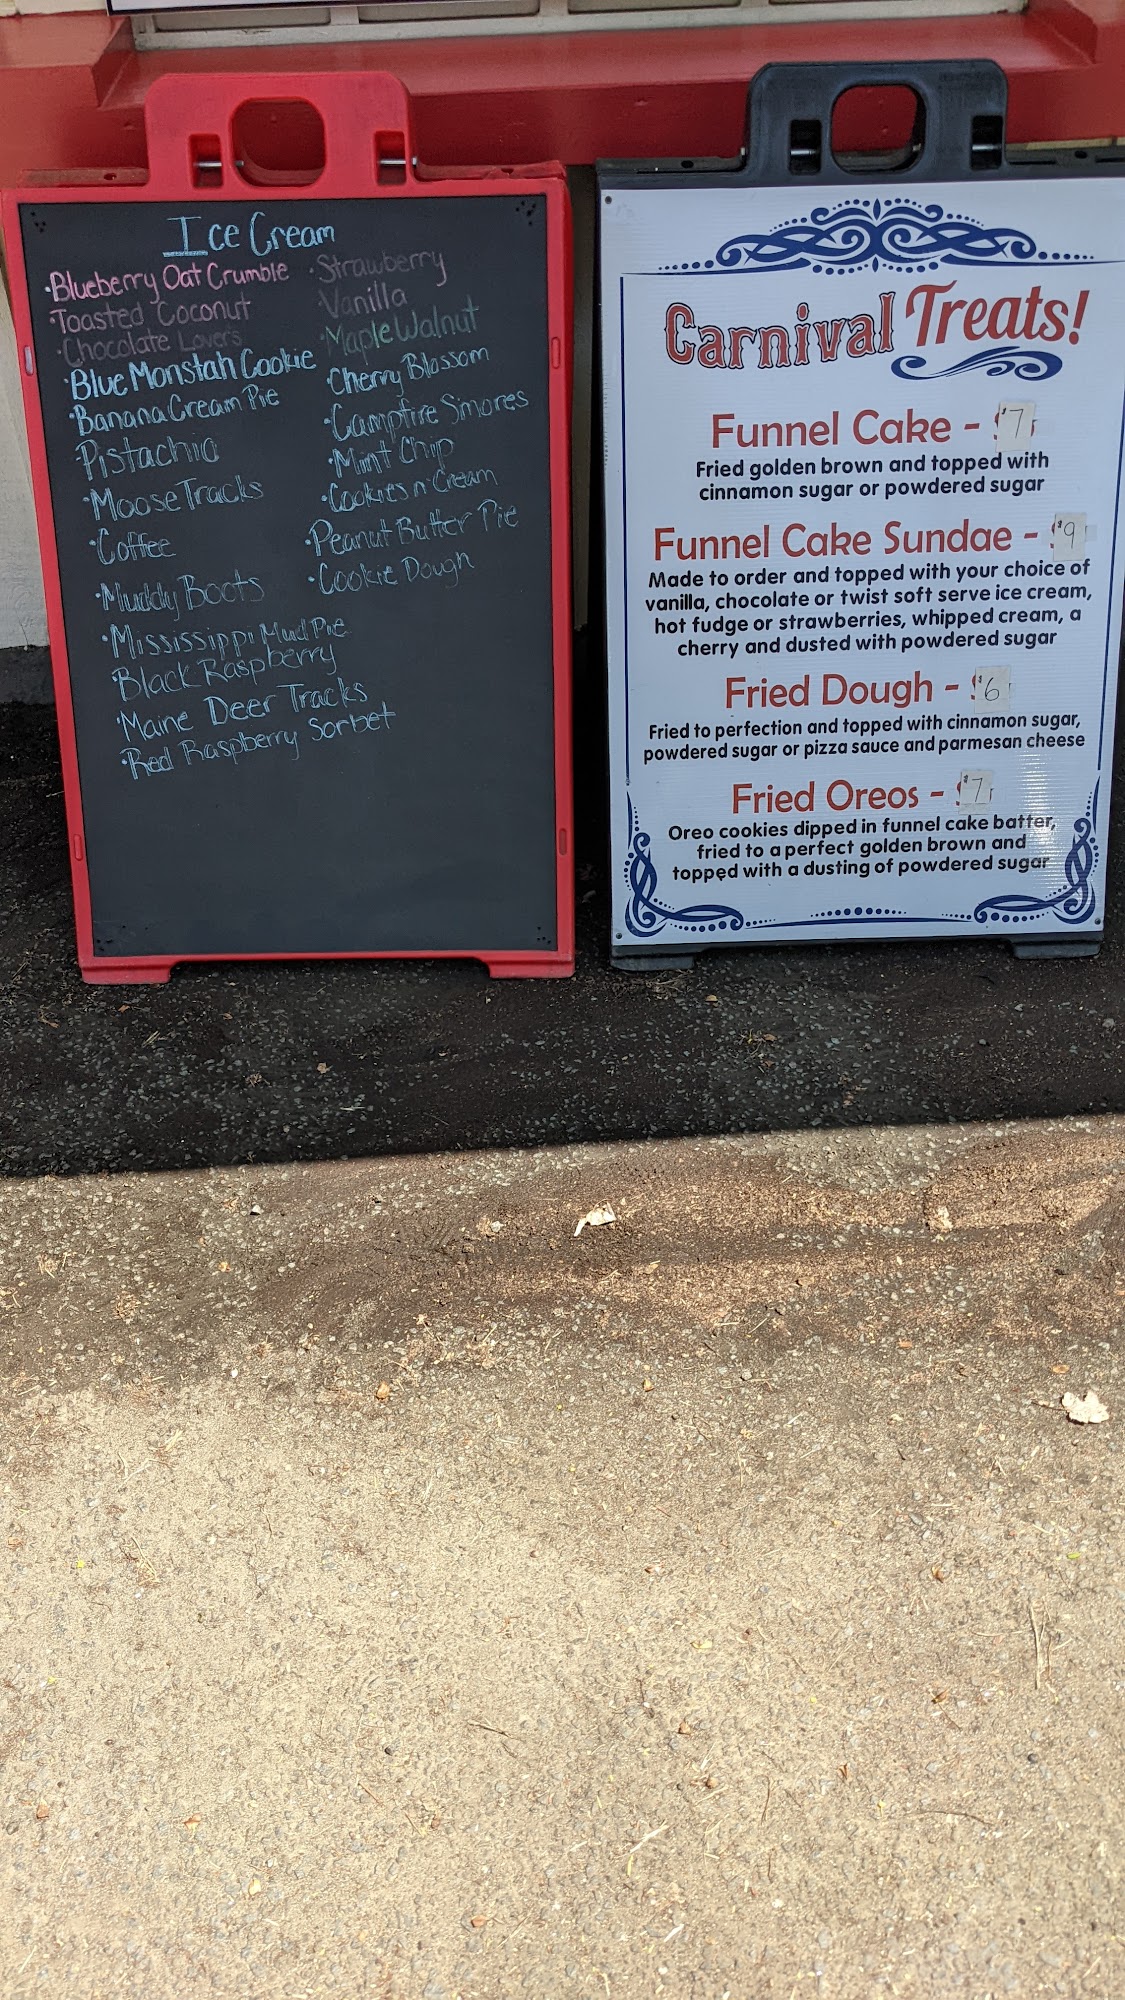 Ice Cream
·Blueberry Oat Crumble
·Toasted Coconut
·Chocolate Lovers
·Blue Monstah Cookie
·Banana Cream Pie
·Pistachio
·Moose Tracks
·Coffee
·Muddy Boots
·Mississippi Mud Pie
·Black Raspberry
·Maine Deer Tracks
·Red Raspberry Sorbet
·Strawberry
·Vanilla
·Maple Walnut
·Cherry Blossom
·Campfire S'mores
·Mint Chip
·Cookies n' Cream
·Peanut Butter Pie
·Cookie Dough
Carnival Treats!
Funnel Cake - $7
Fried golden brown and topped with
cinnamon sugar or powdered sugar
Funnel Cake Sundae - $9
Made to order and topped with your choice of
vanilla, chocolate or twist soft serve ice cream,
hot fudge or strawberries, whipped cream, a
cherry and dusted with powdered sugar
Fried Dough - $6
Fried to perfection and topped with cinnamon sugar,
powdered sugar or pizza sauce and parmesan cheese
Fried Oreos - $7
Oreo cookies dipped in funnel cake batter,
fried to a perfect golden brown and
topped with a dusting of powdered sugar